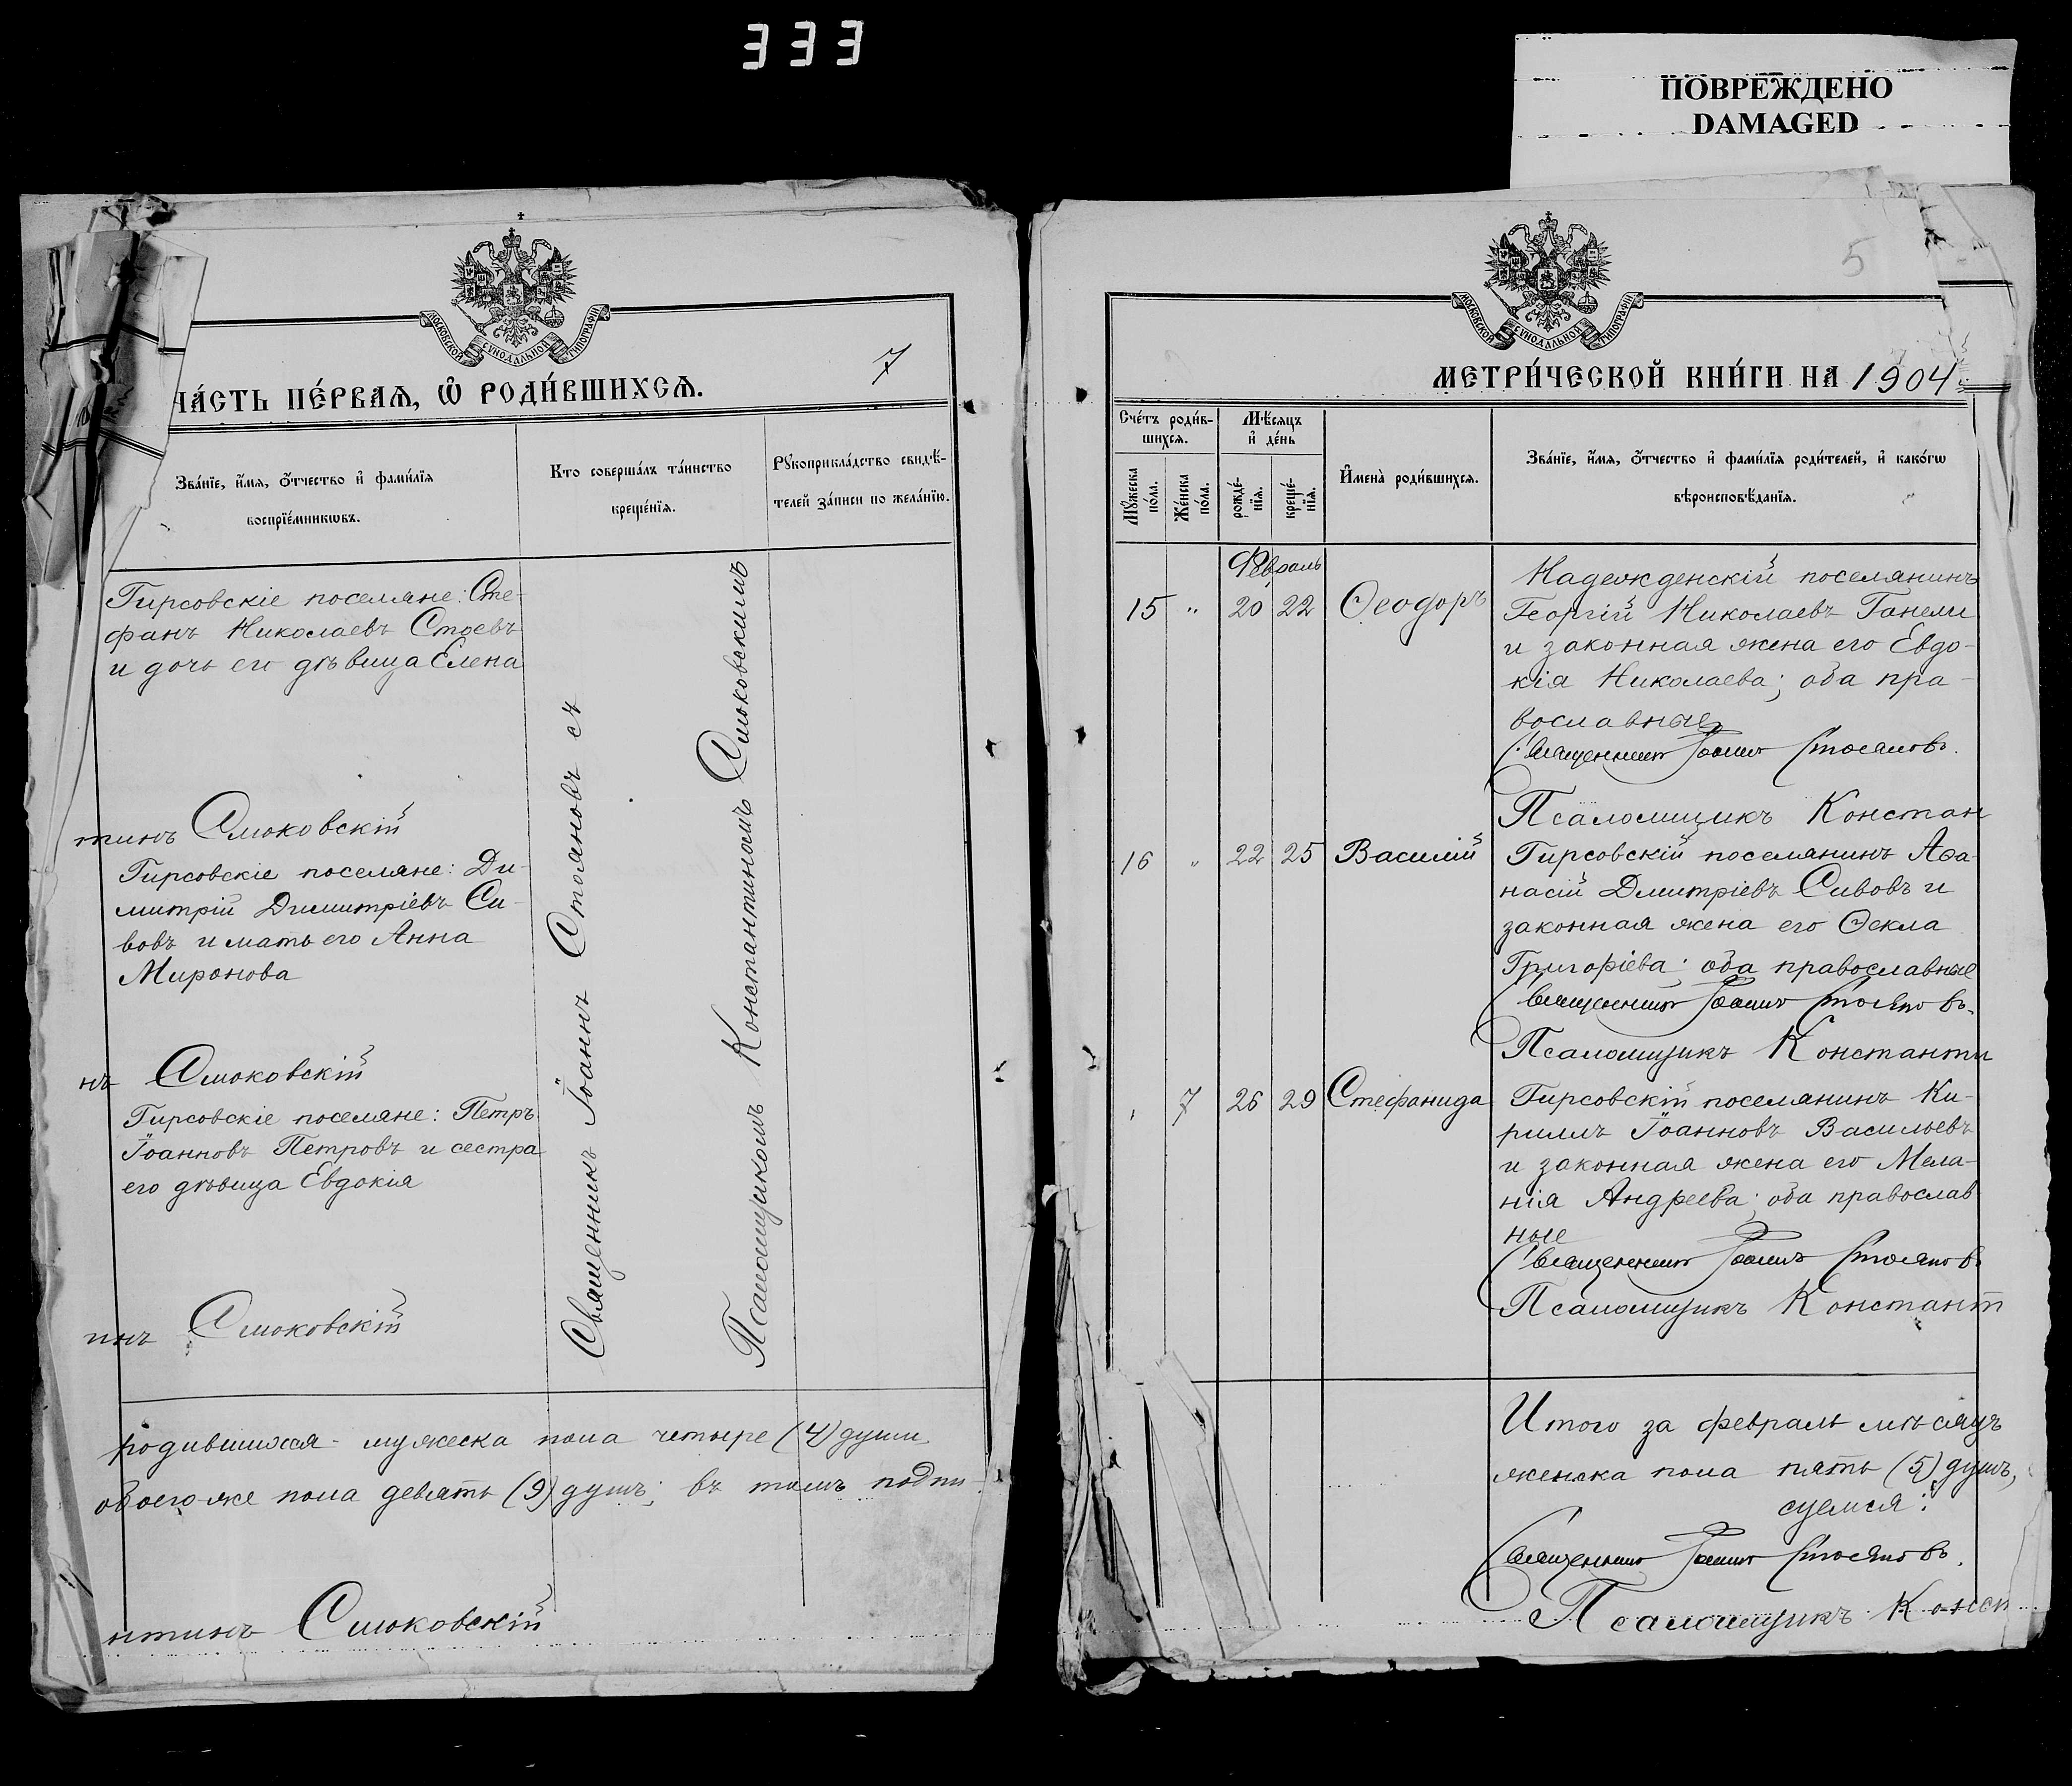 333
ПОВРЕЖДЕНО
DAMAGED
МОСКОВСКОЙ СУНОДАЛЬНОЙ ТИПОГРАФІИ
7
ЧА́СТЬ ПЕ́РВАѦ, Ѡ҆ РОДИ́ВШИХСѦ.
Зва́нїе, и҆́мѧ, ѻ҆́тчество и҆ фами́лїѧ
воспрїе́мникѡвъ.
Кто соверша́лъ та́инство
креще́нїѧ.
Рꙋкоприкла́дство свидѣ́-
телей за́писи по жела́нїю.
Гирсовскіе поселяне: Сте-
фанъ Николаевъ Стоевъ
и дочь его дѣвица Елена
тинъ Смоковскій
Гирсовскіе поселяне: Ди-
митрій Димитріевъ Си-
вовъ и мать его Анна
Миронова
нъ Смоковскій
Гирсовскіе поселяне: Петръ
Іоанновъ Петровъ и сестра
его дѣвица Евдокія
инъ Смоковскій
Священникъ Іоаннъ Стояновъ съ
Псаломщикомъ Константиномъ Смоковскимъ
родившихся мужеска пола четыре (4) души
обоего же пола девять (9) душъ; въ томъ подпи-
нтинъ Смоковскій
5
МОСКОВСКОЙ СУНОДАЛЬНОЙ ТИПОГРАФІИ
МЕТРИ́ЧЕСКОЙ КНИ́ГИ НА 1904
Сче́тъ роди́в-
шихсѧ.
Мꙋ́жеска по́ла.
Же́нска по́ла.
Мѣ́сѧцъ
и҆ де́нь
рожде́нїѧ.
креще́нїѧ.
И҆мена̀ роди́вшихсѧ.
Зва́нїе, и҆́мѧ, ѻ҆́тчество и҆ фами́лїѧ роди́телей, и҆ како́гѡ
вѣроисповѣ́данїѧ.
Февраль
15 " 20 22 Ѳеодоръ
Надежденскій поселянинъ
Георгій Николаевъ Ганели
и законная жена его Евдо-
кія Николаева; оба пра-
вославные
Священникъ Іоаннъ Стояновъ.
Псаломщикъ Констан
16 " 22 25 Василій
Гирсовскій поселянинъ Аѳа-
насій Дмитріевъ Сивовъ и
законная жена его Ѳекла
Григоріева; оба православные
Священникъ Іоаннъ Стояновъ.
Псаломщикъ Константи
" 7 26 29 Стефанида
Гирсовскій поселянинъ Ки-
риллъ Іоанновъ Васильевъ
и законная жена его Мела-
нія Андреева; оба православ
ные
Священникъ Іоаннъ Стояновъ
Псаломщикъ Констант
Итого за февраль мѣсяцъ
женска пола пять (5) душъ,
суемся:
Священникъ Іоаннъ Стояновъ.
Псаломщикъ Конста